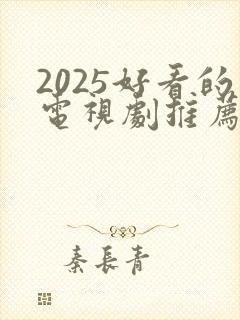 2025好看的
電視劇推薦
秦長青